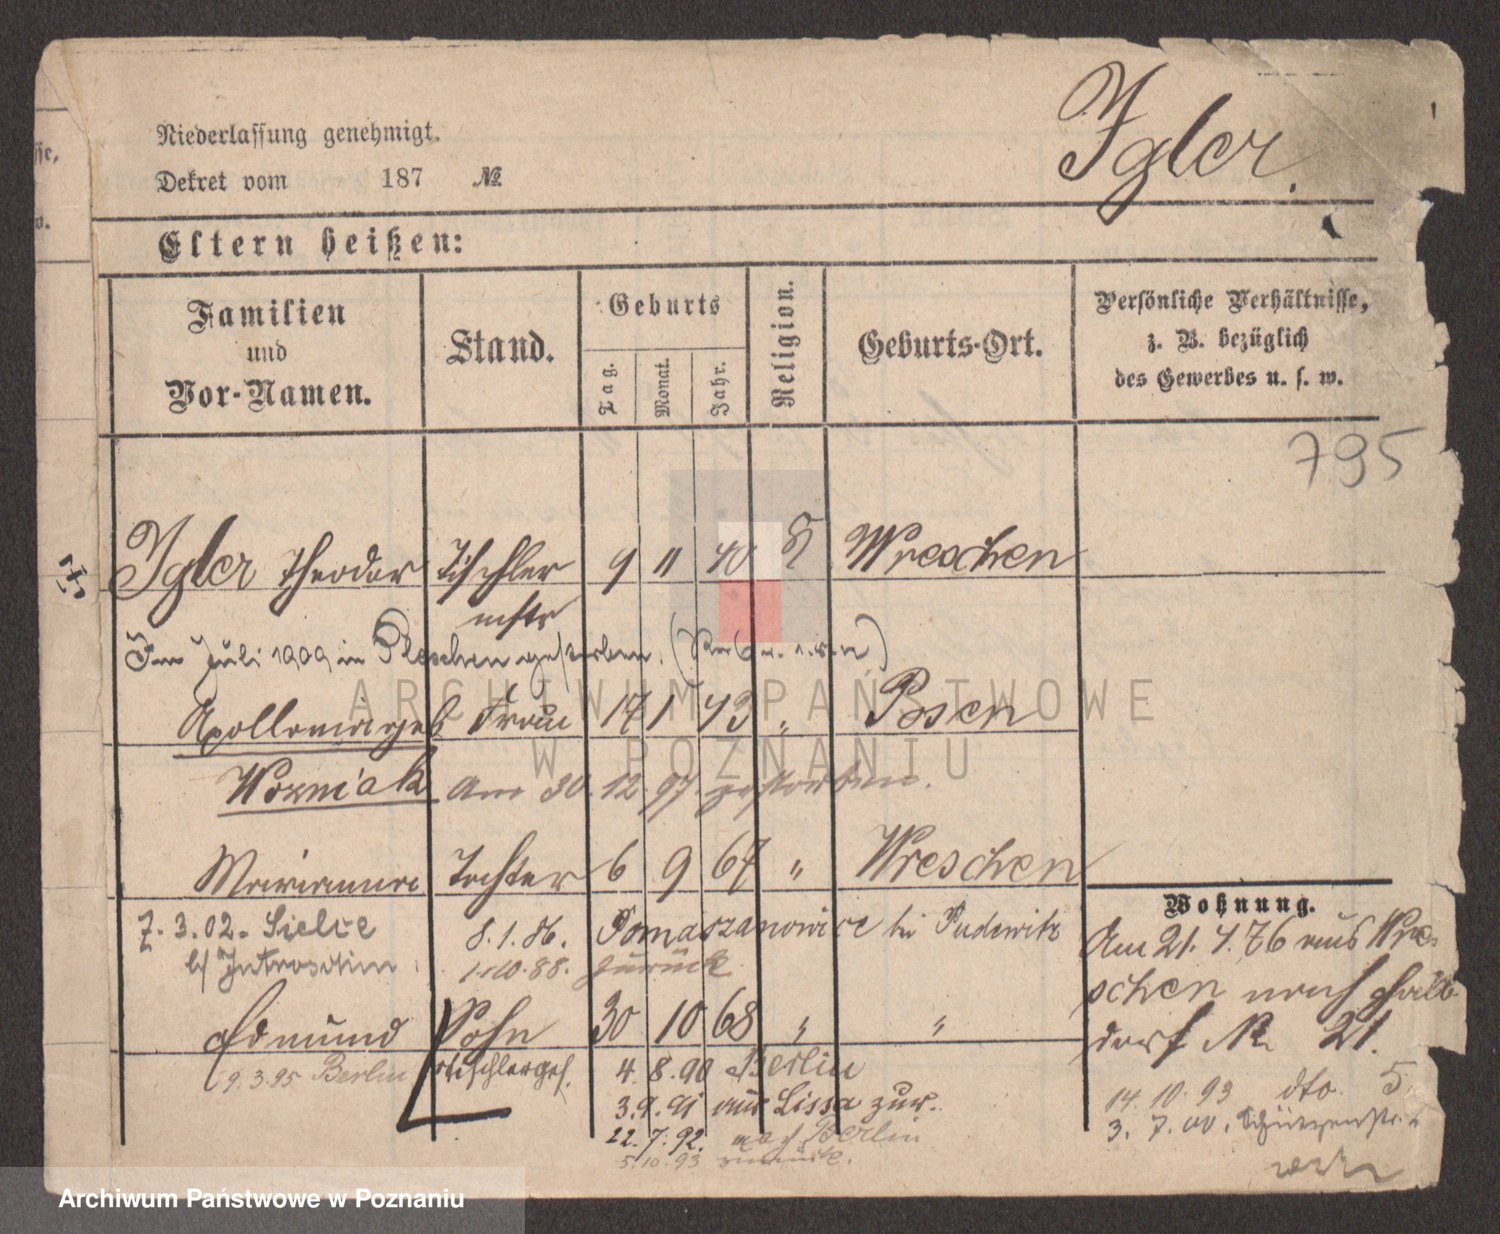 Igler.
Niederlassung genehmigt.
Dekret vom 187 №
Eltern heißen:
Familien und Vor-Namen.
Stand.
Geburts
Tag.
Monat.
Jahr.
Religion.
Geburts-Ort.
Persönliche Verhältnisse,
z. B. bezüglich
des Gewerbes u. s. w.
795
Igler Theodor Tischler 9 11 40 Wreschen
mstr
Im Juli 1909 in Pleschen gestorben.
Apollonia geb Frau 17 1 43 " Posen
Wozniak Am 30.12.97. gestorben.
Marianna Tochter 6 9 67 " Wreschen
7.3.02. Sielce 8.1.86. Tomaszanowice bei Pudewitz
b/ Jutroschin 1.10.88. zurück
Edmund Sohn 30 10 68 " "
9.3.95 Berlin Tischlerges. 4.8.90 Berlin
3.9.91 aus Lissa zur.
22.7.92. nach Berlin
5.10.93 zurück.
Wohnung.
Am 21.4.76 aus Wre-
schen nach Halb-
dorf Nr 21.
14.10.93 dto. 5
3.7.00. Schützenstr.
ARCHIWUM PAŃSTWOWE
W POZNANIU
Archiwum Państwowe w Poznaniu